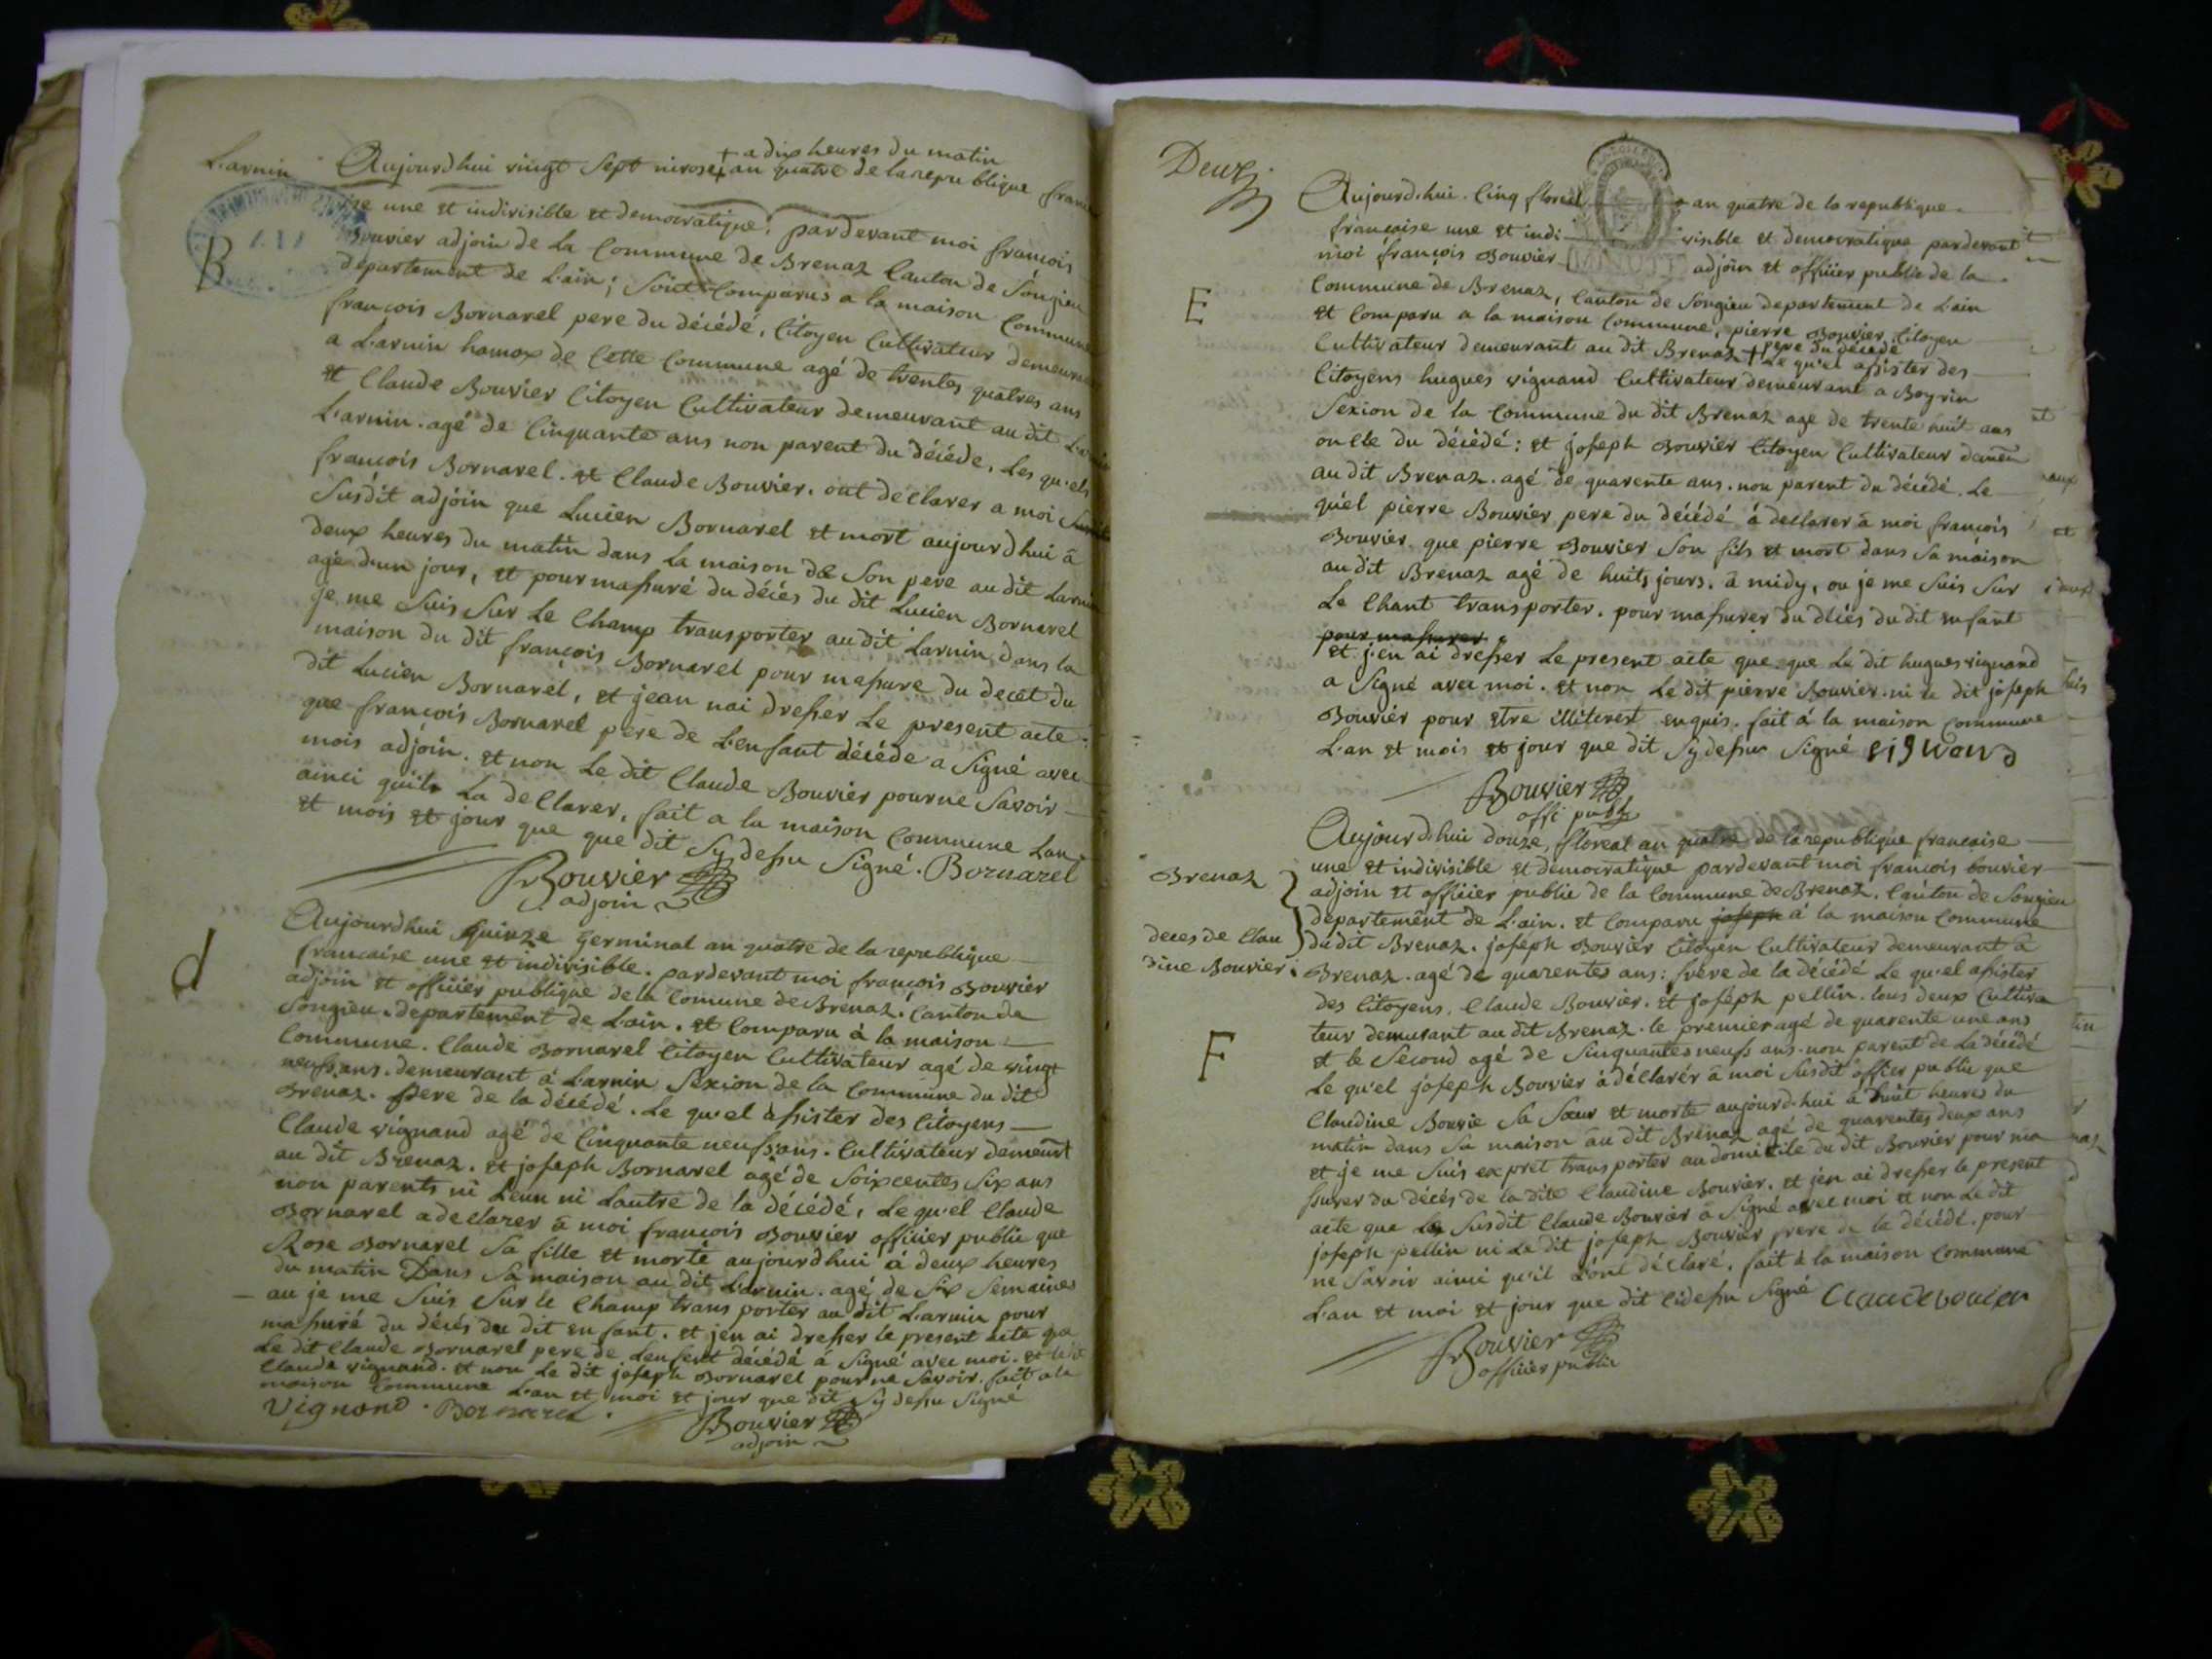 L'arnin
+ a dix heures du matin
Aujourd'hui vingt Sept nivose + an quatre de la republique fran
se une et indivisible et democratique, pardevant moi françois
Bouvier adjoin de La Commune de Brenaz Canton de Songieu
B
departement de L'ain; sont Comparus a la maison Commune
françois Bornarel pere du décédé, Citoyen Cultivateur demeurant
a L'arnin hamax de Cette Commune agé de trentes quatres ans
et Claude Bouvier Citoyen Cultivateur demeurant au dit
L'arnin. agé de Cinquante ans non parent du décéde, Les qu'els
françois Bornarel. et Claude Bouvier. ont declarer a moi
Susdit adjoin que Lucien Bornarel et mort aujourdhui à
deux heures du matin dans La maison de Son pere au dit Larnin
age d'un jour, et pour massuré du décés du dit Lucien Bornarel
je me Suis Sur Le Champ transporter au dit Larnin, dans la
maison du dit françois Bornarel pour massure du decet du
dit Lucien Bornarel, et jean nai dresser Le present acte
que françois Bornarel père de L'enfant décéde a Signé avec
mois adjoin. et non Le dit Claude Bouvier pour ne Savoir
ainci quils La deClarer, fait a la maison Commune Lan
et mois et jour que que dit Sy dessu Signé. Bornarel
Bouvier
adjoin
d
Aujourdhui quinze Germinal an quatre de la republique
francaise une et indivisible. pardevant moi françois Bouvier
adjoin et officier publique de la Comune de Brenaz. Canton de
Songieu. departement de L'ain. et Comparu à la maison
Commune. Claude Bornarel Citoyen Cultivateur agé de vingt
neufs ans. demeurant à Larnin Sexion de la Commune du dit
Brenaz. pere de la décédé. Le qu'el assister des Citoyens
Claude vignand agé de Cinquante neufs ans. Cultivateur demeurt
au dit Brenaz. et joseph Bornarel agé de Soixcentes Six ans
non parents ni Leun ni Lautre de la décédé, Le qu'el Claude
Bornarel a declarer à moi françois Bouvier officier public que
Rose Bornarel Sa fille et morte aujourdhui à deux heures
du matin Dans Sa maison au dit L'arnin. agé de Six Semaines
au je me Suis Sur le Champ trans porter au dit L'arnin pour
massuré du décés du dit enfant. et jen ai dresser le present acte que
Le dit Claude Bornarel pere de Lenfent décédé à Signé avec moi. et le dt
Claude vignand. et non Le dit joseph Bornarel pour ne Savoir. fait a la
maison Commune L'an et moi et jour que dit Sy dessu Signé
Vignand. Bornarel.
Bouvier
adjoin
Deux
Aujourd.hui. Cinq floreal + an quatre de la republique
francaise une et indi visible et democratique pardevant
moi françois Bouvier adjoin et officier public de la
E
Commune de Brenaz, Canton de Songieu departement de L'ain
et Comparu a la maison Commune, pierre Bouvier Citoyen
pere du décédé
Cultivateur demeurant au dit Brenaz + Le qu'el assister des
Citoyens hugues vignand Cultivateur demeurant a Boyrin
Sexion de la Commune du dit Brenaz age de trente huit ans
oncle du décédé: et joseph Bouvier Citoyen Cultivateur demeu
au dit Brenaz. agé de quarente ans. non parent du décédé. Le
qu'el pierre Bouvier pere du décédé à declarer à moi françois
Bouvier que pierre Bouvier Son fils et mort dans Sa maison
au dit Brenaz agé de huits jours. à midy, ou je me Suis Sur
Le Chant transporter. pour massurer du décés du dit enfant
pour massurer
et j'en ai dresser Le present acte que que Le dit hugues vignand
a Signé avec moi. et non Le dit pierre Bouvier. ni Le dit joseph
Bouvier pour etre illiterest enquis. fait à la maison Commune
L'an et mois et jour que dit Sy dessu Signé vignand
Bouvier
offi publ
Aujourd'hui douze, floreal an quatre de la republique francaise
une et indivisible et democratique pardevant moi françois bouvier
Brenaz
adjoin et officier public de la Commune de Brenaz. Canton de Songieu
departement de L'ain. et Comparu joseph à la maison Commune
deces de Clau
dine Bouvier
du dit Brenaz. joseph Bouvier Citoyen Cultivateur demeurant à
Brenaz. agé de quarentes ans: frère de la décédé Le qu'el assister
des Citoyens. Claude Bouvier. et joseph pellin. tous deux Cultiva
F
teur demurant au dit Brenaz. le premier agé de quarente une ans
et le Second agé de Sinquantes neufs ans. non parent de La décédé
Le qu'el joseph Bouvier à déclarér à moi Susdit officer public que
Claudine Bouvie Sa Sœur et morte aujourd.hui à huit heures du
matin dans Sa maison au dit Brenaz agé de quarentes deux ans
et je me Suis ex pret trans porter au domicile du dit Bouvier pour ma
ssurer du décés de la dite Claudine Bouvier. et j'en ai dresser le present
acte que Le Susdit Claude Bouvier à Signé avec moi et non Le dit
joseph pellin ni Le dit joseph Bouvier frere de la décédé. pour
ne Savoir ainci qu'il L'ont déclaré. fait à la maison Commune
L'an et moi et jour que dit Cidessu Signé Claude bouier
Bouvier
officier public